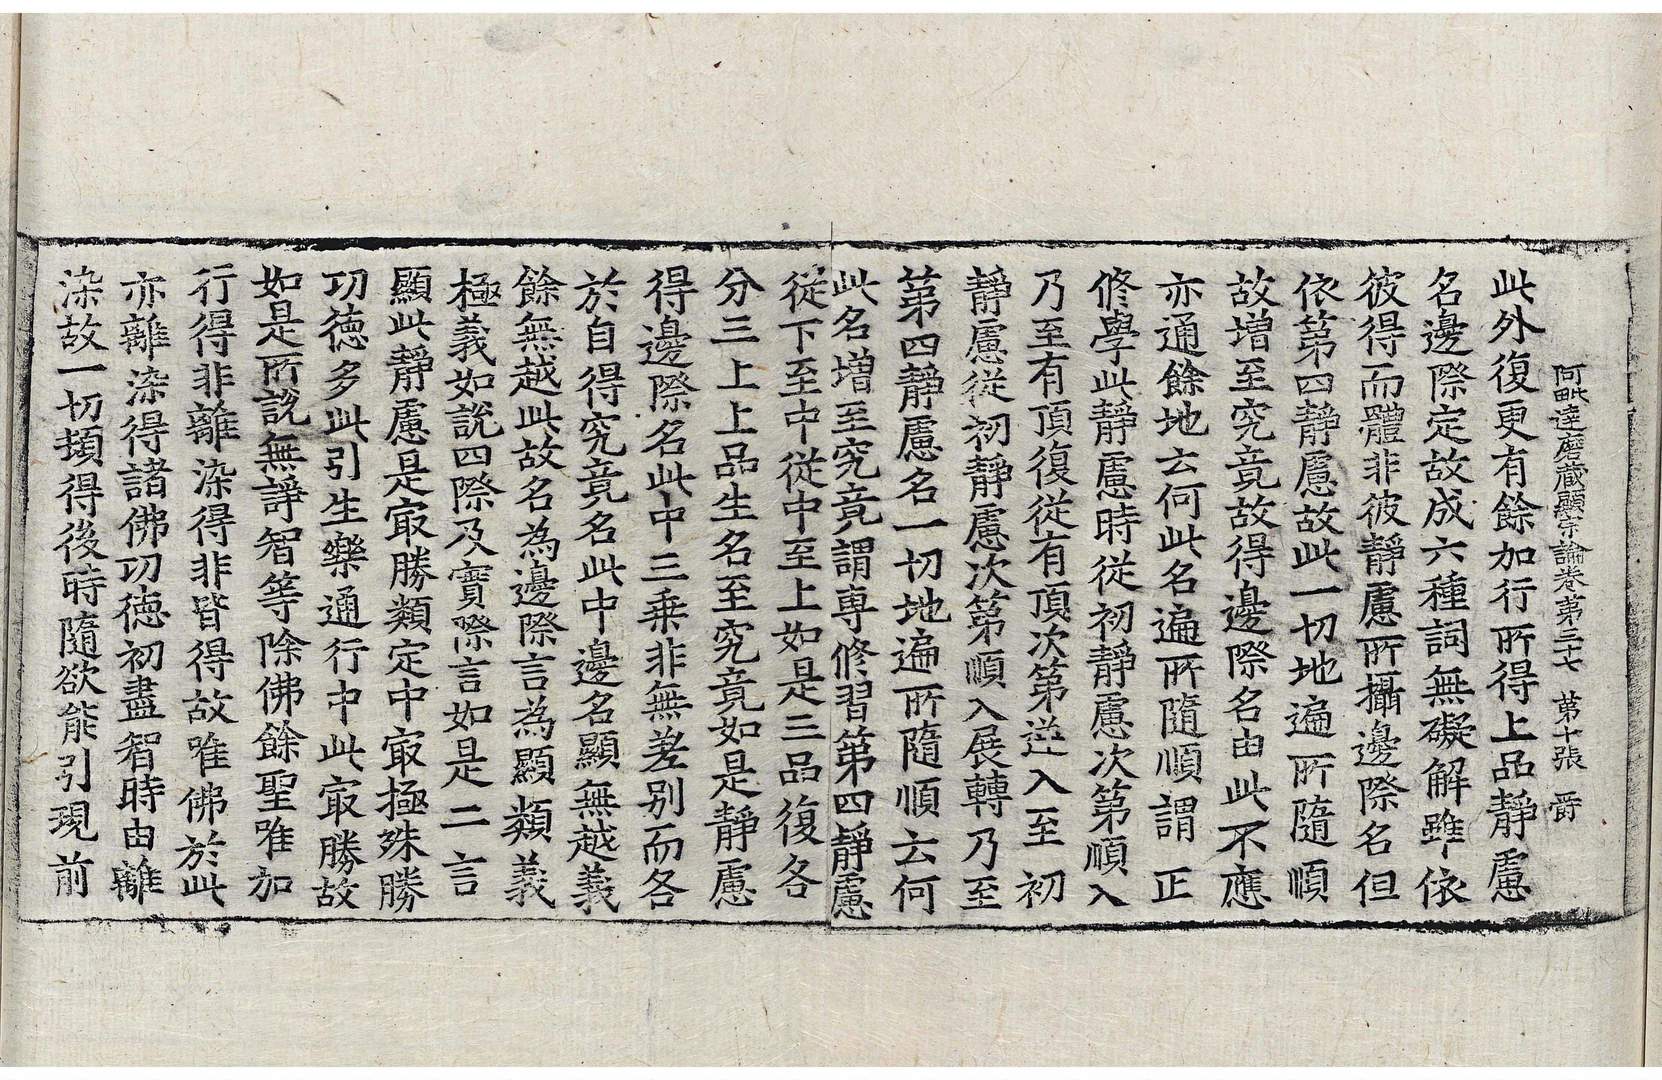 阿毗達磨藏顯宗論卷第三十七 第十張 爵
此外復更有餘加行所得上品靜慮
名邊際定故成六種詞無礙解雖依
彼得而體非彼靜慮所攝邊際名但
依第四靜慮故此一切地遍所隨順
故增至究竟故得邊際名由此不應
亦通餘地云何此名遍所隨順謂正
修學此靜慮時從初靜慮次第順入
乃至有頂復從有頂次第逆入至初
靜慮從初靜慮次第順入展轉乃至
第四靜慮名一切地遍所隨順云何
此名增至究竟謂專修習第四靜慮
從下至中從中至上如是三品復各
分三上上品生名至究竟如是靜慮
得邊際名此中三乘非無差別而各
於自得究竟名此中邊名顯無越義
餘無越此故名為邊際言為顯類義
極義如說四際及實際言如是二言
顯此靜慮是冣勝類定中冣極殊勝
功德多此引生樂通行中此冣勝故
如是所說無諍智等除佛餘聖唯加
行得非離染得非皆得故唯佛於此
亦離染得諸佛功德初盡智時由離
染故一切頓得後時隨欲能引現前